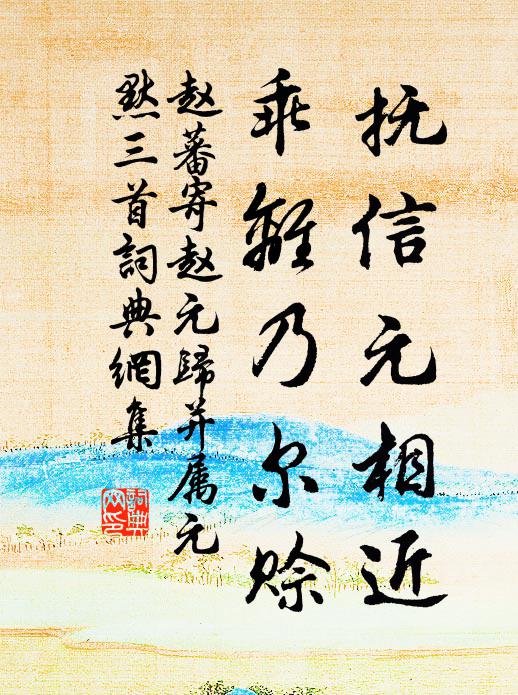 抚信元相近
乖離乃尔賒
赵蕃寄赵元歸并属元
默三首詞典網集
詞典网印